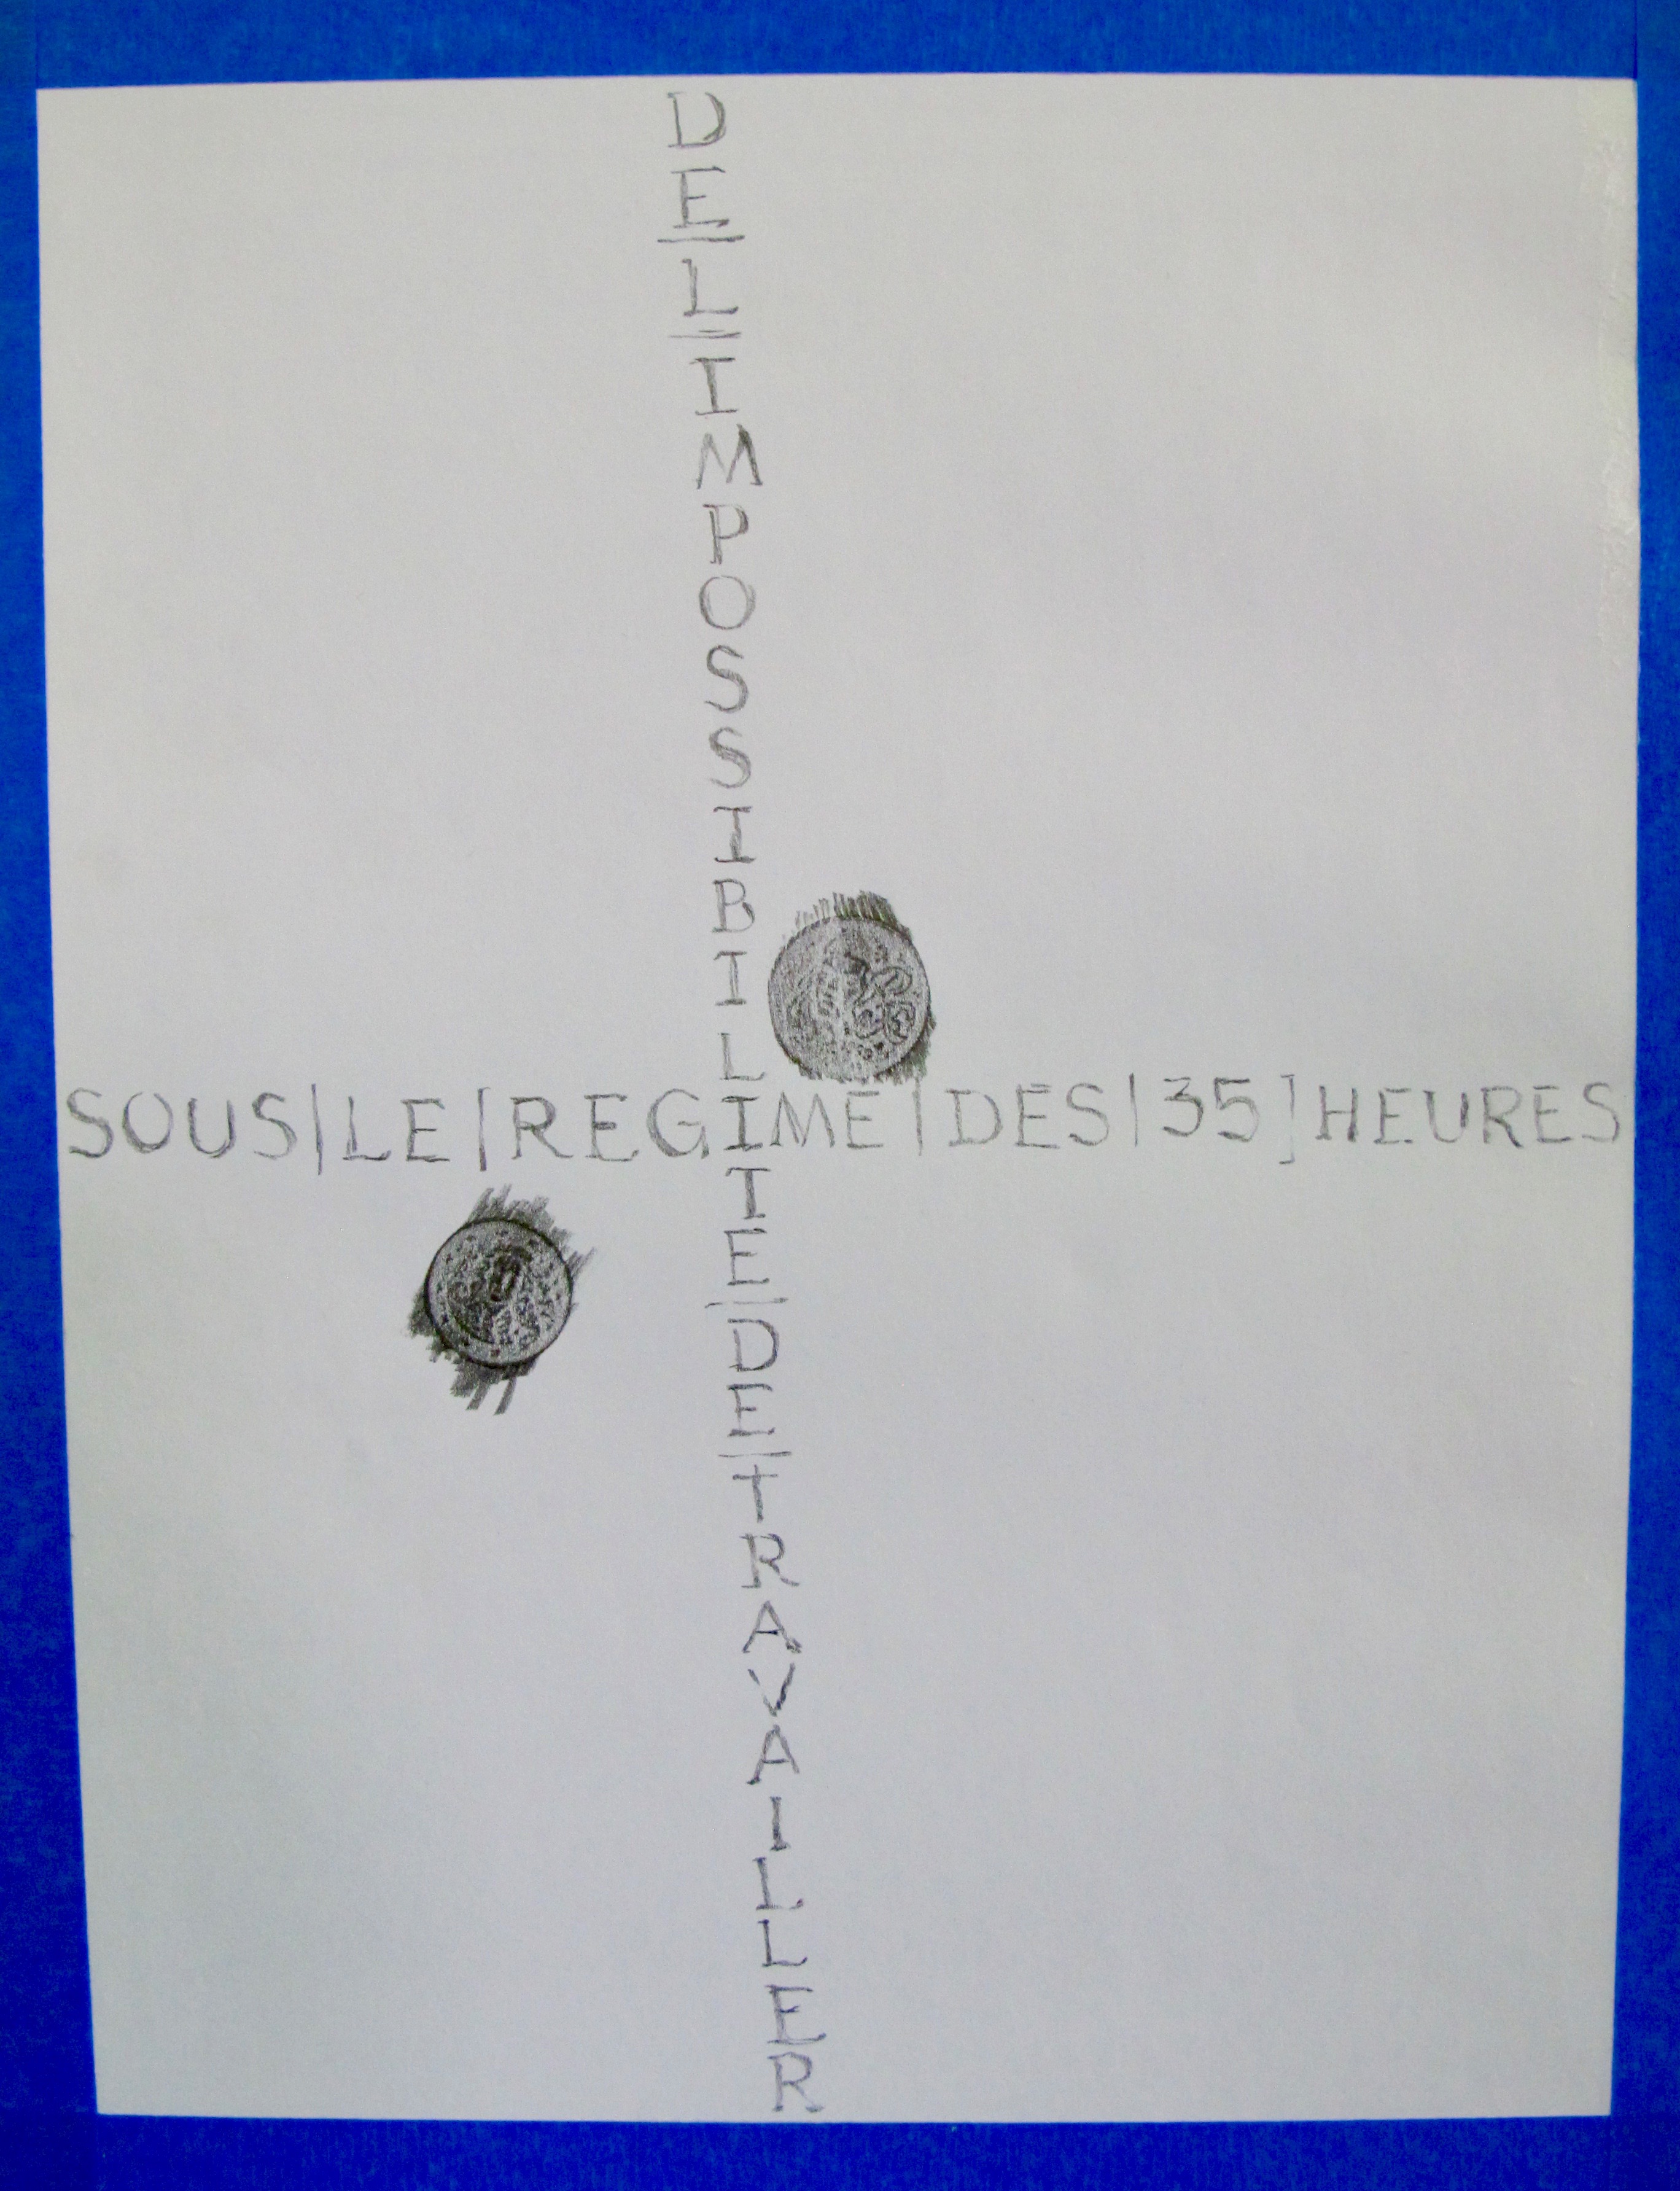 DE|L|IMPOSSIBILITE|DE|TRAVAILLER
SOUS|LE|REGIME|DES|35|HEURES